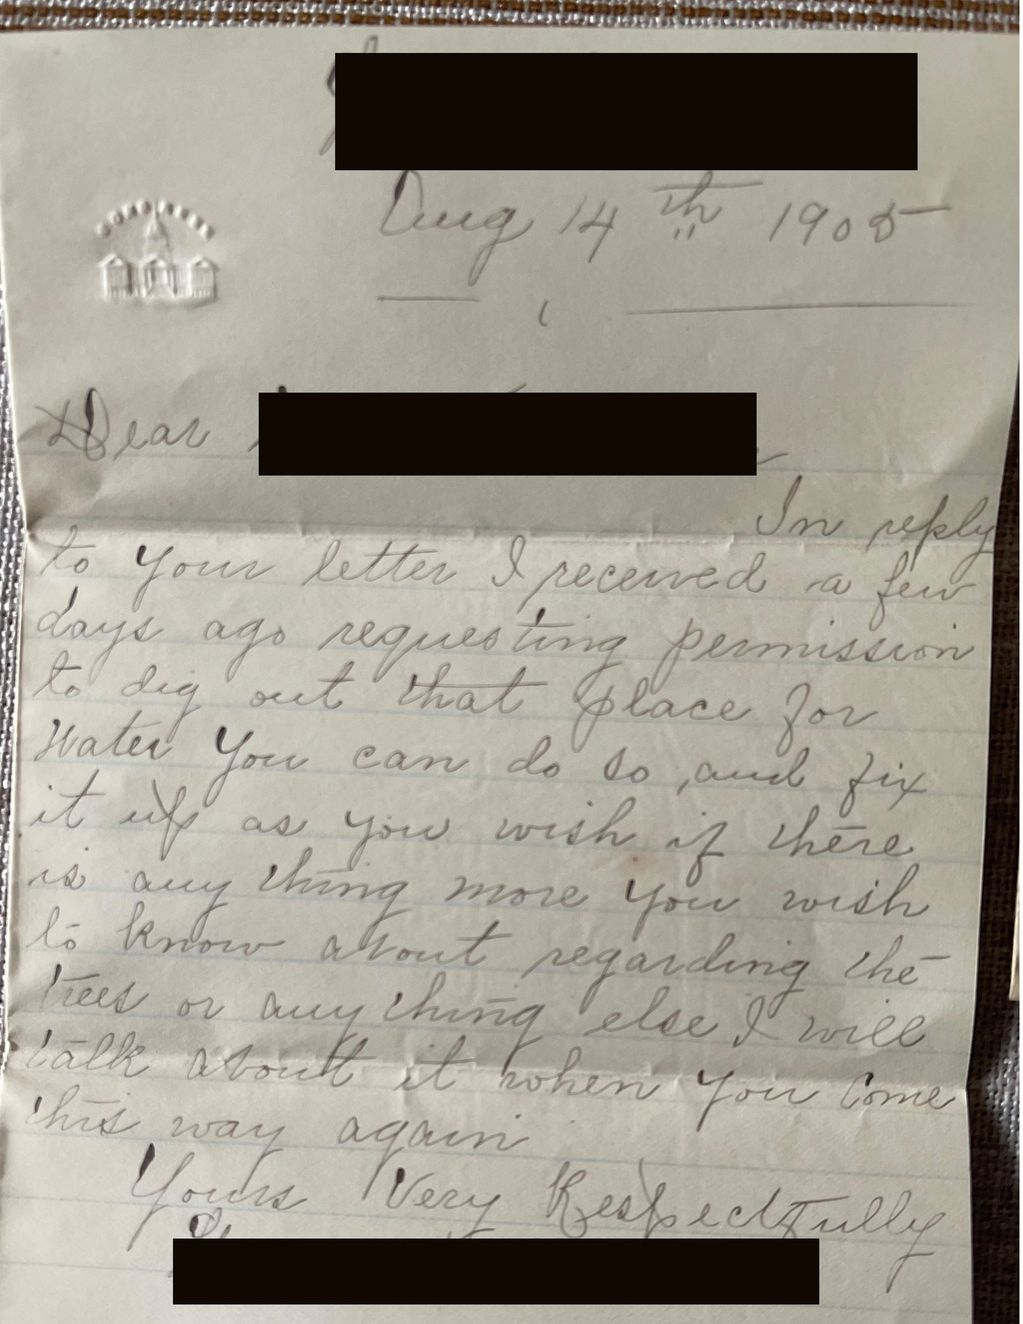 Aug 14th 1905
Dear
In reply
to your letter I received a few
days ago requesting permission
to dig out that place for
Water You can do so, and fix
it up as you wish if there
is any thing more you wish
to know about regarding the
trees or any thing else I will
talk about it when you Come
this way again
Yours Very Respectfully